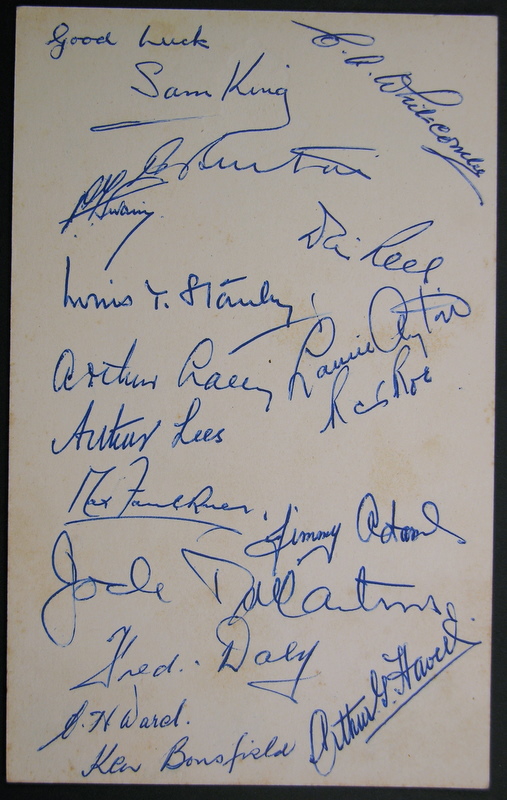 Good Luck
Sam King
C. A. Whitcombe
Dai Rees
Louis T. Stanley
Arthur Lacey
Laurie Ayton
Arthur Lees
Max Faulkner
Jimmy Adams
Jack
Fred. Daly
Arthur G. Havers
C. H Ward.
Ken Bousfield